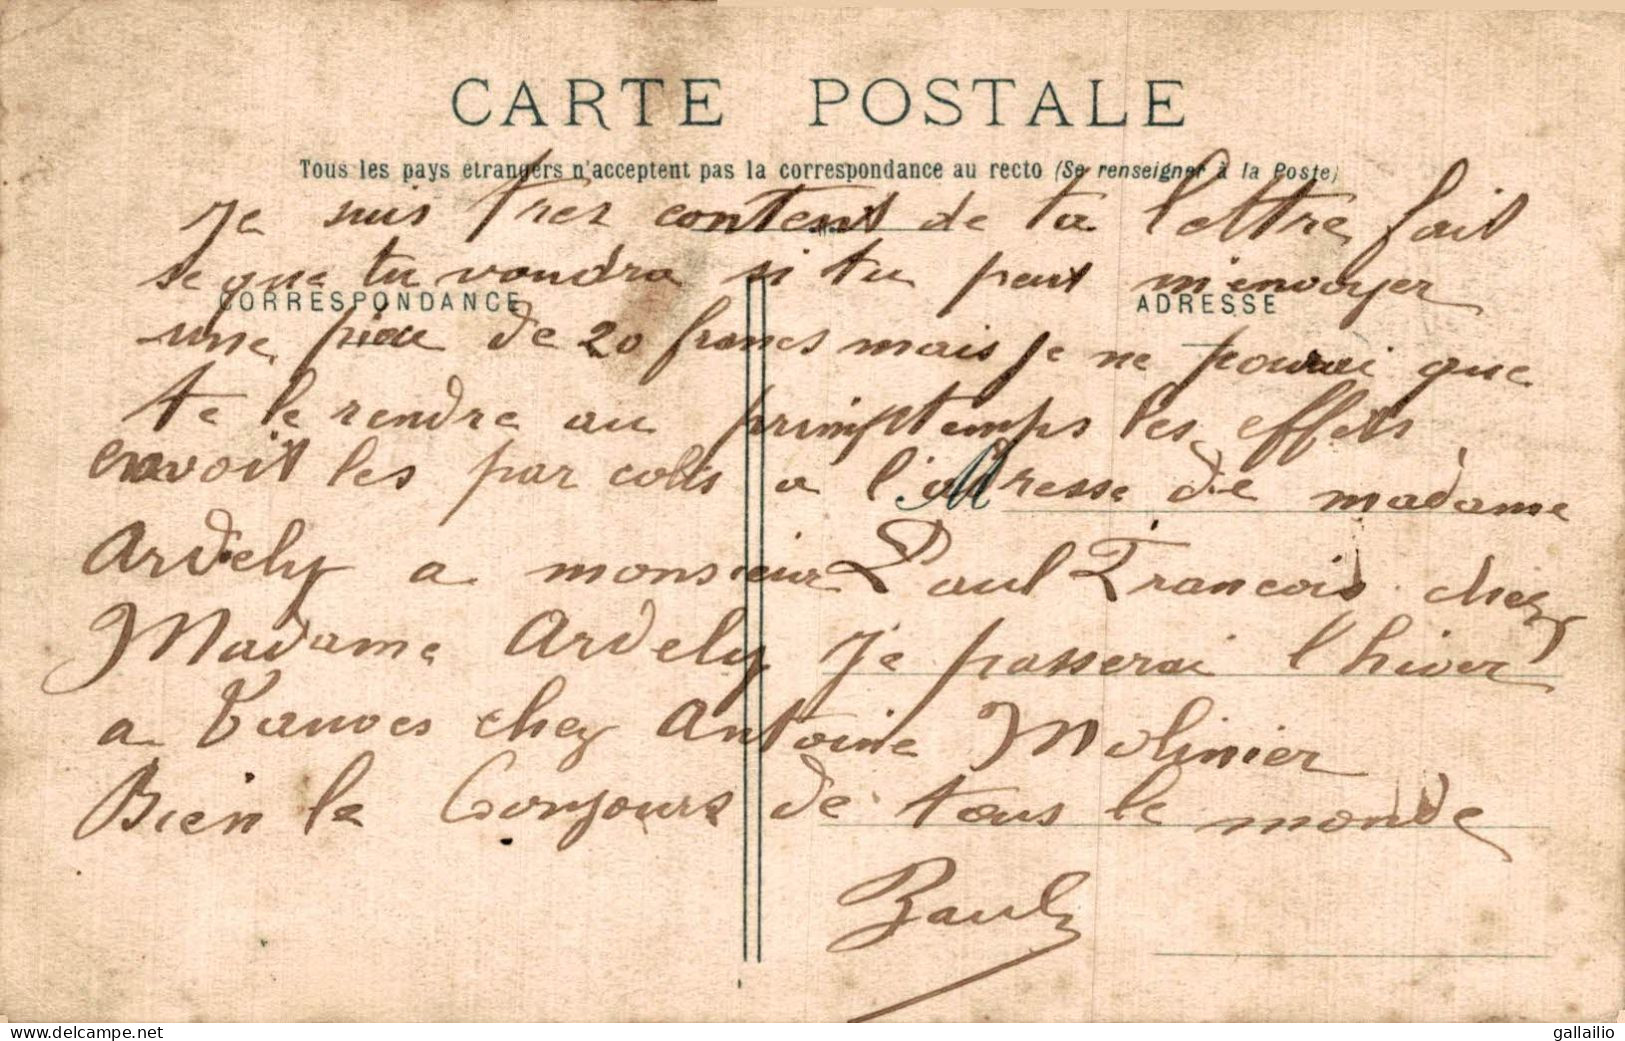 CARTE POSTALE
Tous les pays étrangers n'acceptent pas la correspondance au recto (Se renseigner à la Poste)
Je suis tres content de ta lettre fait
se que tu voudra si tu peut m'envoyer
CORRESPONDANCE
ADRESSE
une piece de 20 francs mais je ne pourai que
te le rendre au primptemps les effets
envoit les par colis a l'adresse de madame
M
Ardely a monsieur Paul Francois chez
Madame Ardely Je passerai l'hiver
a Vanves chez Antoine Molinier
Bien le Bonjours de tous le monde
Paul
delcampe.net
gallailio